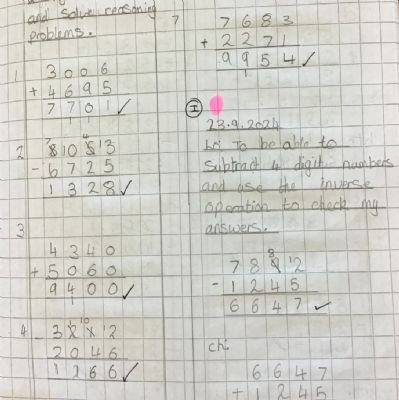 and solve reasoning
problems.
1
3 0 0 6
+ 4 6 9 5
7 7 0 1 ✓
1 1
2
7 4
8 10 5 13
- 6 7 2 5
1 3 2 8 ✓
3
4 3 4 0
+ 5 0 6 0
9 4 0 0 ✓
1
4
10
- 3 12
2 0 4 6
1 2 6 6 ✓
7
7 6 8 3
+ 2 2 7 1
9 9 5 4 ✓
1
I
23.9.2024
To be able to
subtract 4 digit numbers
and use the inverse
operation to check my
answers.
8
7 8 9 12
- 1 2 4 5
6 6 4 7 ✓
ch:
6 6 4 7
+ 1 2 4 5